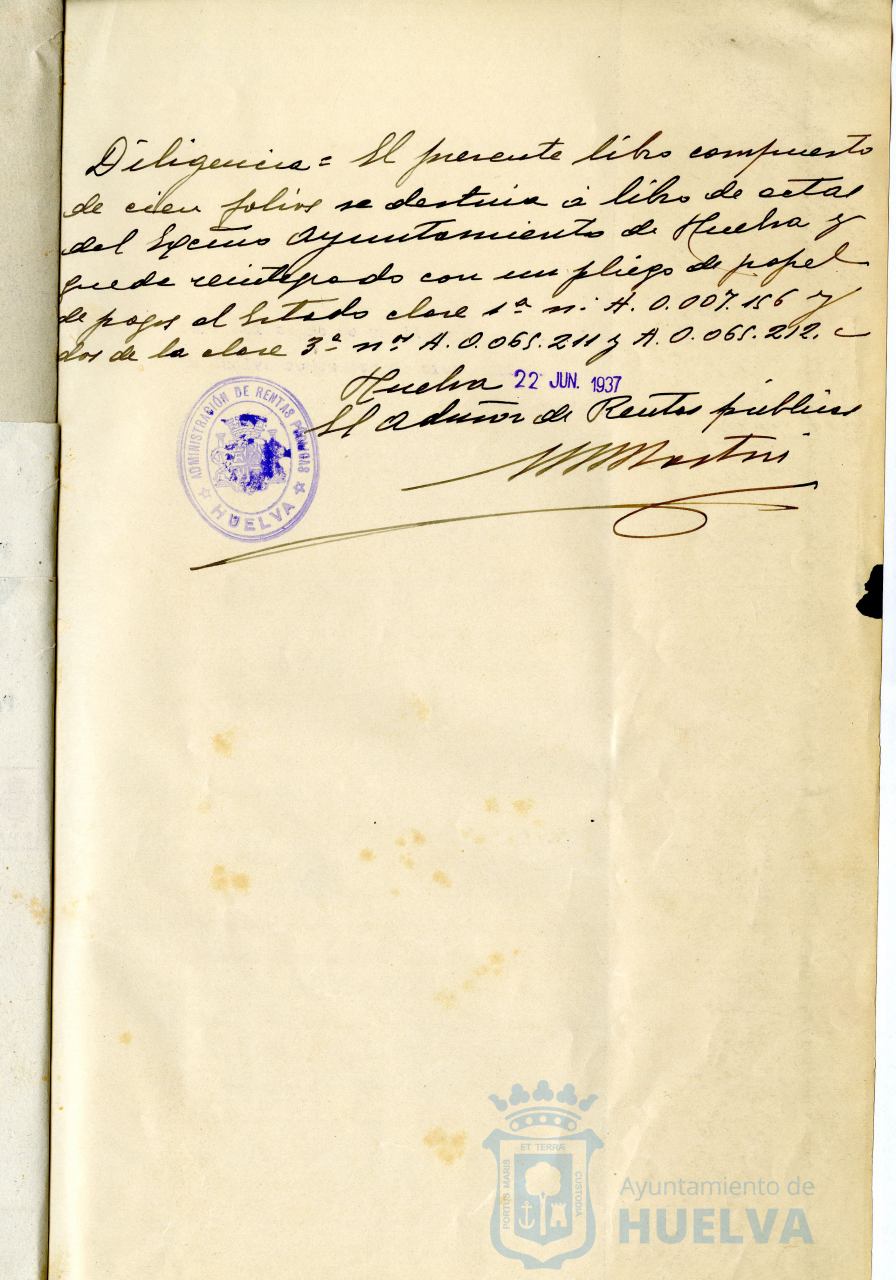 Diligencia = El presente libro compuesto
de cien folios se destina a libro de actas
del Excmo Ayuntamiento de Huelva y
queda reintegrado con un pliego de papel
de pagos al Estado clase 1ª nº A. 0.007.156 y
dos de la clase 3ª nos A. 0.065.211 y A. 0.065.212.
Huelva 22 JUN. 1937
El Admor de Rentas públicas
ADMINISTRACIÓN DE RENTAS PÚBLICAS
HUELVA
ET TERRÆ
PORTUS MARIS
CUSTODIA
Ayuntamiento de
HUELVA